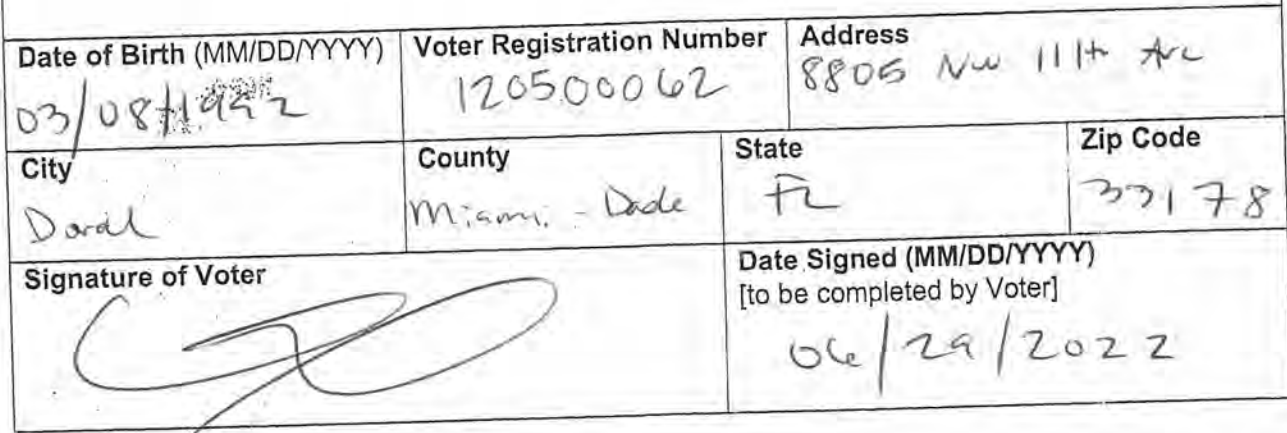 Date of Birth (MM/DD/YYYY)
03/08/1992
Voter Registration Number
120500062
Address
8805 NW 111th Ave
City
Doral
County
Miami - Dade
State
FL
Zip Code
33178
Signature of Voter
Date Signed (MM/DD/YYYY)
[to be completed by Voter]
06/29/2022